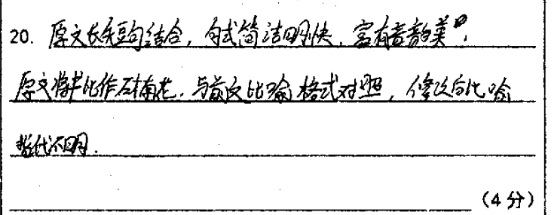 20. 原文长短句结合,句式简洁明快,富有音韵美;
原文将其比作石榴花,与前文比喻格式对照,修改后比喻
指代不明.
(4分)